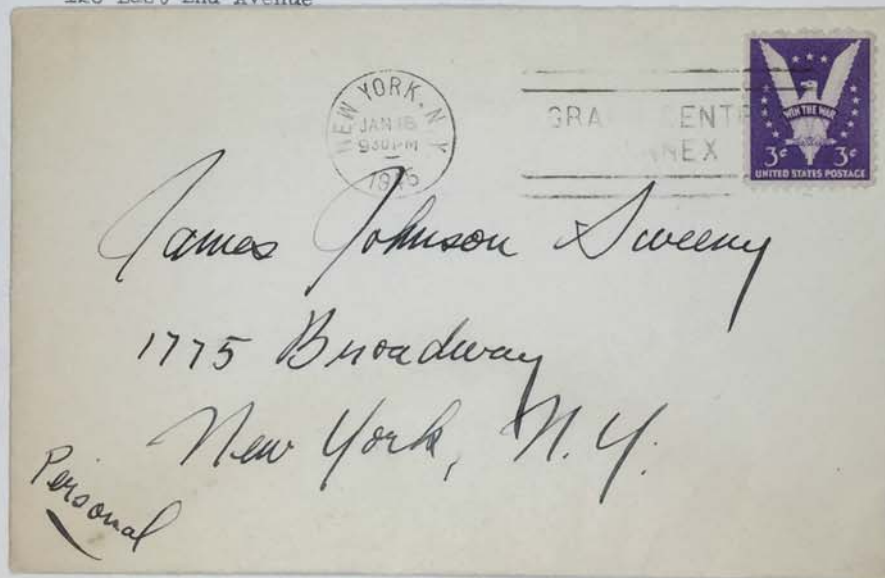 East End Avenue
NEW YORK, N.Y.
JAN 18
9 30 PM
GRA ENT
NEX
WIN THE WAR
3¢ 3¢
UNITED STATES POSTAGE
James Johnson Sweeny
1775 Broadway
New York, N.Y.
Personal